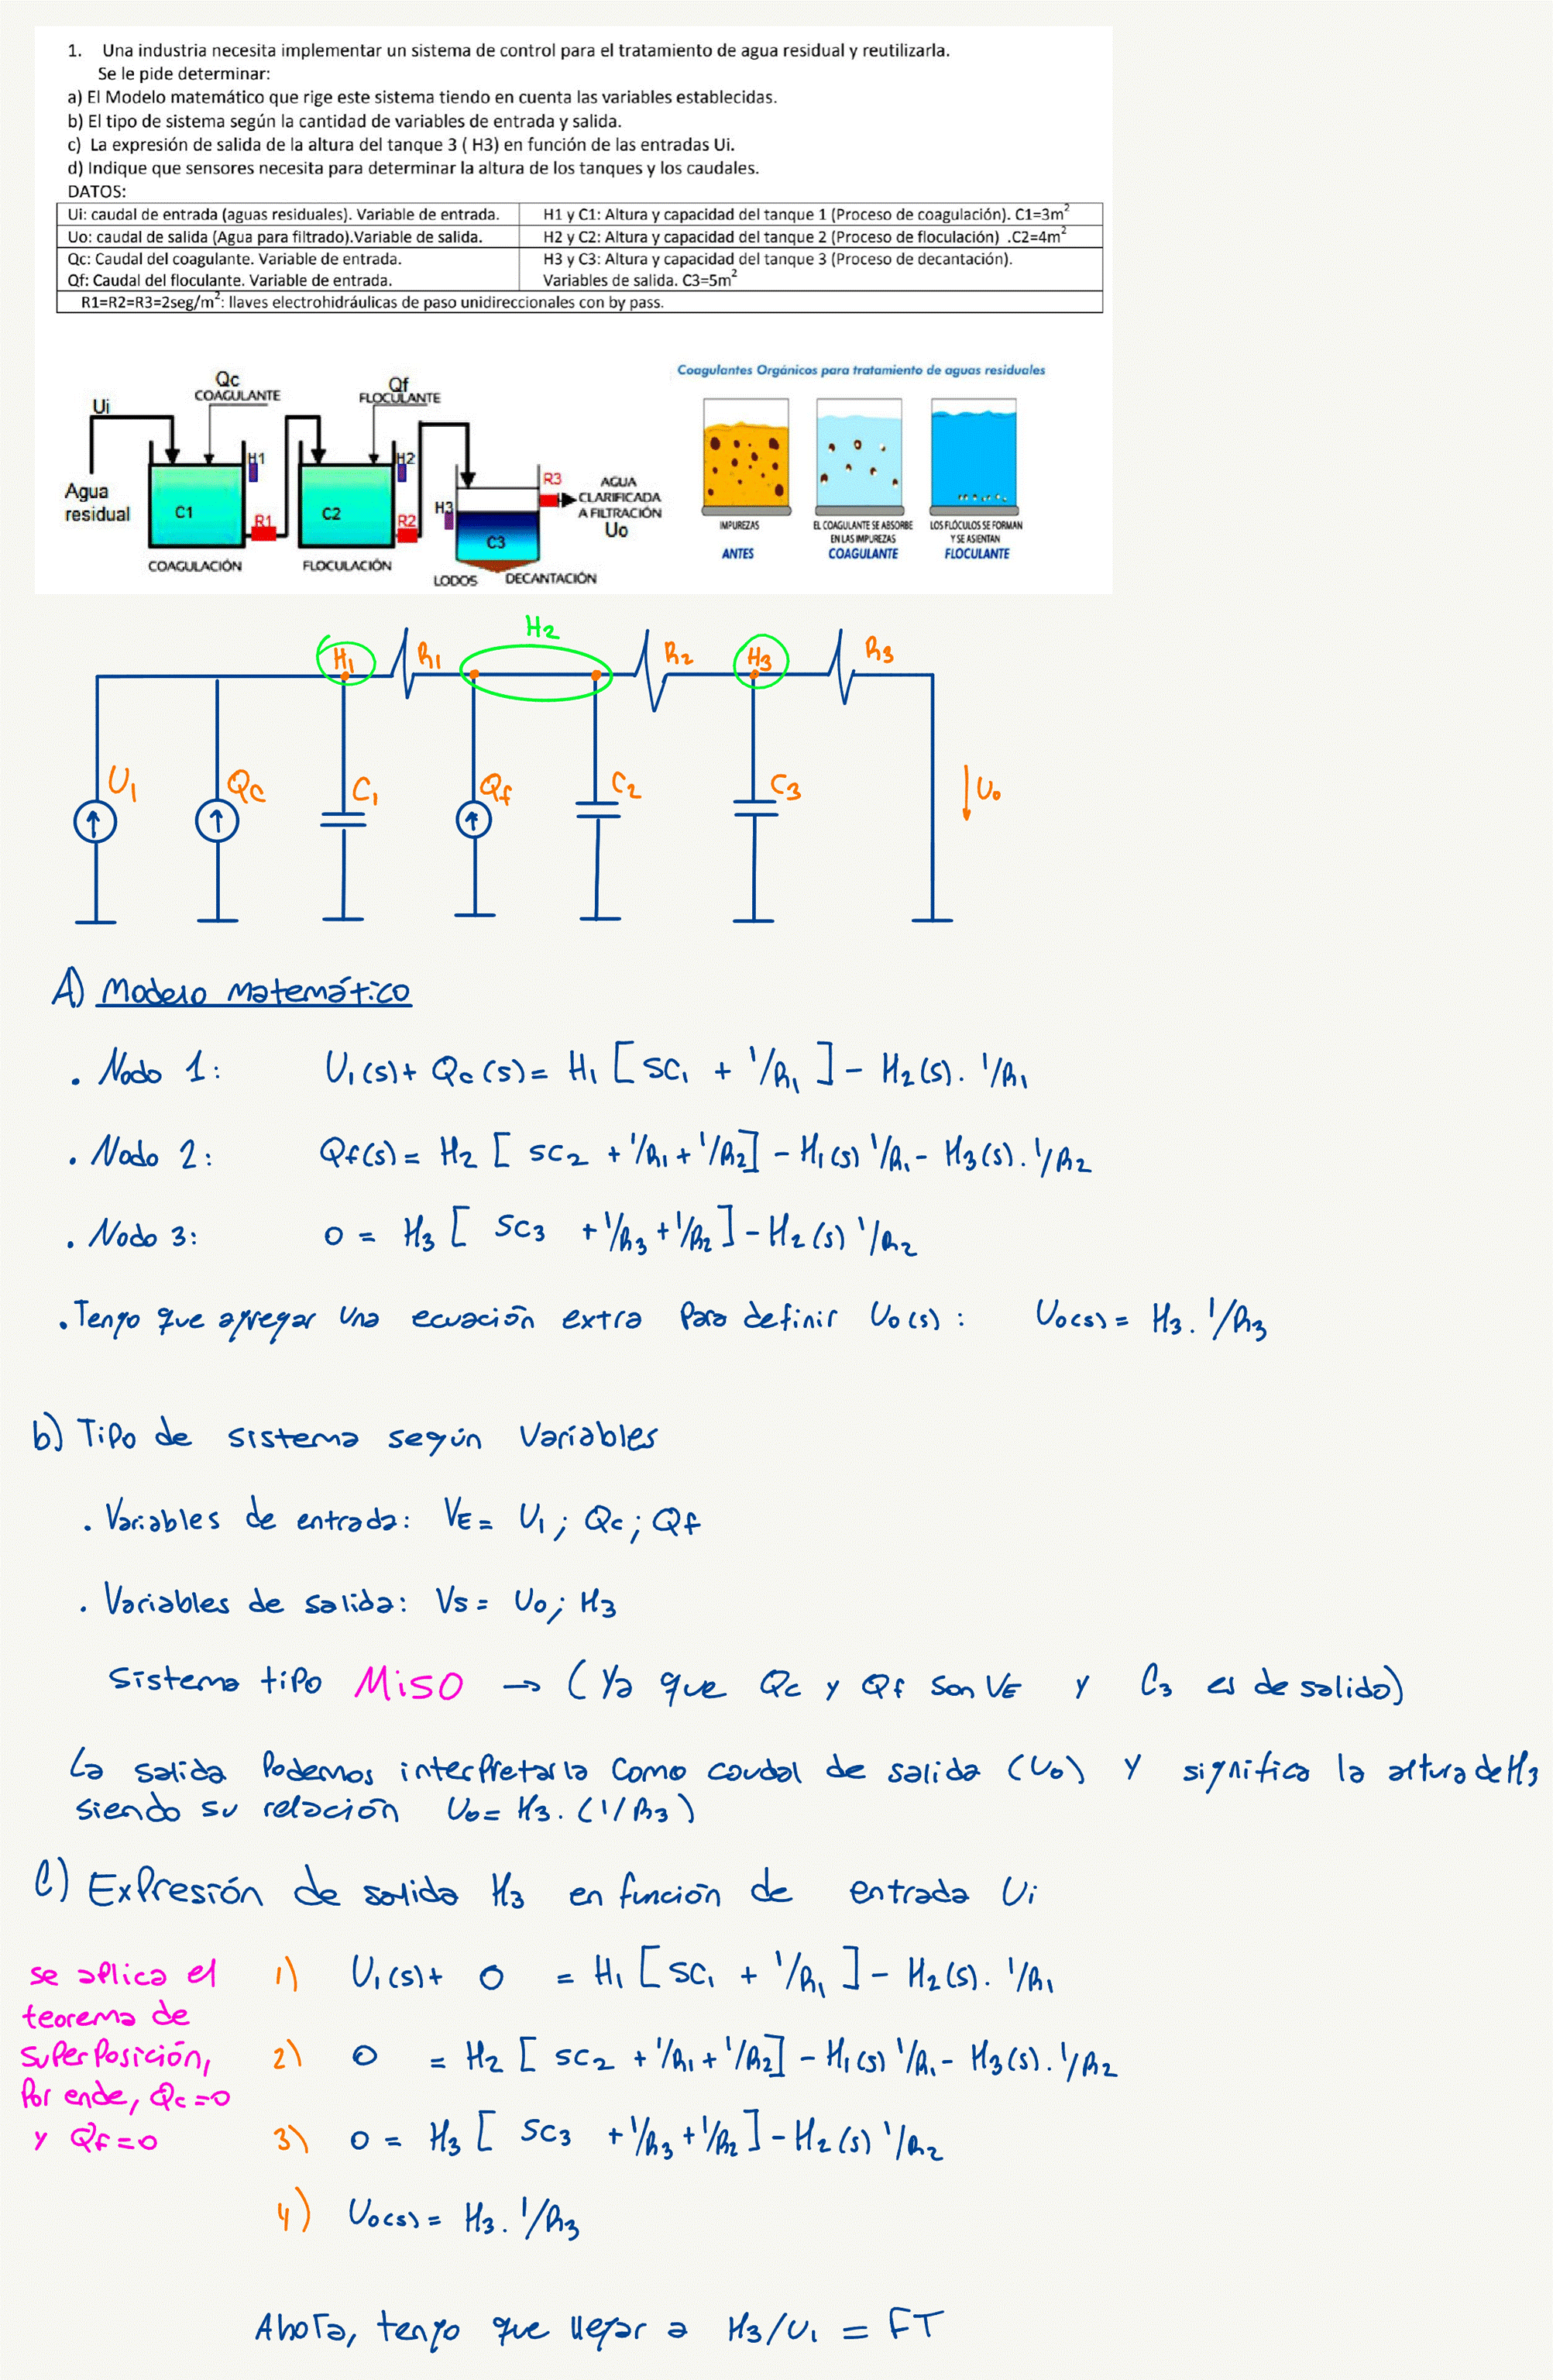 1. Una industria necesita implementar un sistema de control para el tratamiento de agua residual y reutilizarla.
Se le pide determinar:
a) El Modelo matemático que rige este sistema tiendo en cuenta las variables establecidas.
b) El tipo de sistema según la cantidad de variables de entrada y salida.
c) La expresión de salida de la altura del tanque 3 ( H3) en función de las entradas Ui.
d) Indique que sensores necesita para determinar la altura de los tanques y los caudales.
DATOS:
Ui: caudal de entrada (aguas residuales). Variable de entrada.
H1 y C1: Altura y capacidad del tanque 1 (Proceso de coagulación). C1=3m²
Uo: caudal de salida (Agua para filtrado).Variable de salida.
H2 y C2: Altura y capacidad del tanque 2 (Proceso de floculación) .C2=4m²
Qc: Caudal del coagulante. Variable de entrada.
Qf: Caudal del floculante. Variable de entrada.
H3 y C3: Altura y capacidad del tanque 3 (Proceso de decantación).
Variables de salida. C3=5m²
R1=R2=R3=2seg/m²: llaves electrohidráulicas de paso unidireccionales con by pass.
Qc
COAGULANTE
Qf
FLOCULANTE
Ui
H1
H2
Agua
residual
C1
R1
C2
R2
H3
C3
R3
AGUA
CLARIFICADA
A FILTRACIÓN
Uo
COAGULACIÓN
FLOCULACIÓN
LODOS
DECANTACIÓN
Coagulantes Orgánicos para tratamiento de aguas residuales
IMPUREZAS
ANTES
EL COAGULANTE SE ABSORBE
EN LAS IMPUREZAS
COAGULANTE
LOS FLÓCULOS SE FORMAN
Y SE ASIENTAN
FLOCULANTE
H2
H1
R1
R2
H3
R3
U1
Qc
C1
Qf
C2
C3
Uo
A) Modelo matemático
. Nodo 1: U1(s)+ Qc(s)= H1 [ SC1 + 1/R1 ] - H2(s). 1/R1
. Nodo 2: Qf(s)= H2 [ SC2 + 1/R1 + 1/R2] - H1(s) 1/R1 - H3(s). 1/R2
. Nodo 3: 0 = H3 [ SC3 + 1/R3 + 1/R2 ] - H2(s) 1/R2
. Tengo que agregar una ecuación extra para definir Uo(s) : Uo(s)= H3. 1/R3
b) Tipo de sistema según variables
. Variables de entrada: VE= U1 ; Qc ; Qf
. Variables de salida: VS= Uo; H3
Sistema tipo MISO → ( Ya que Qc y Qf son VE y C3 es de salida)
La salida podemos interpretarla como caudal de salida (Uo) y significa la altura de H3
siendo su relación Uo= H3. (1/R3)
C) Expresión de salida H3 en función de entrada Ui
se aplica el
teorema de
superposición,
por ende, Qc=0
y Qf=0
1) U1(s)+ 0 = H1 [ SC1 + 1/R1 ] - H2(s). 1/R1
2) 0 = H2 [ SC2 + 1/R1 + 1/R2] - H1(s) 1/R1 - H3(s). 1/R2
3) 0 = H3 [ SC3 + 1/R3 + 1/R2 ] - H2(s) 1/R2
4) Uo(s)= H3. 1/R3
Ahora, tengo que llegar a H3/U1 = FT